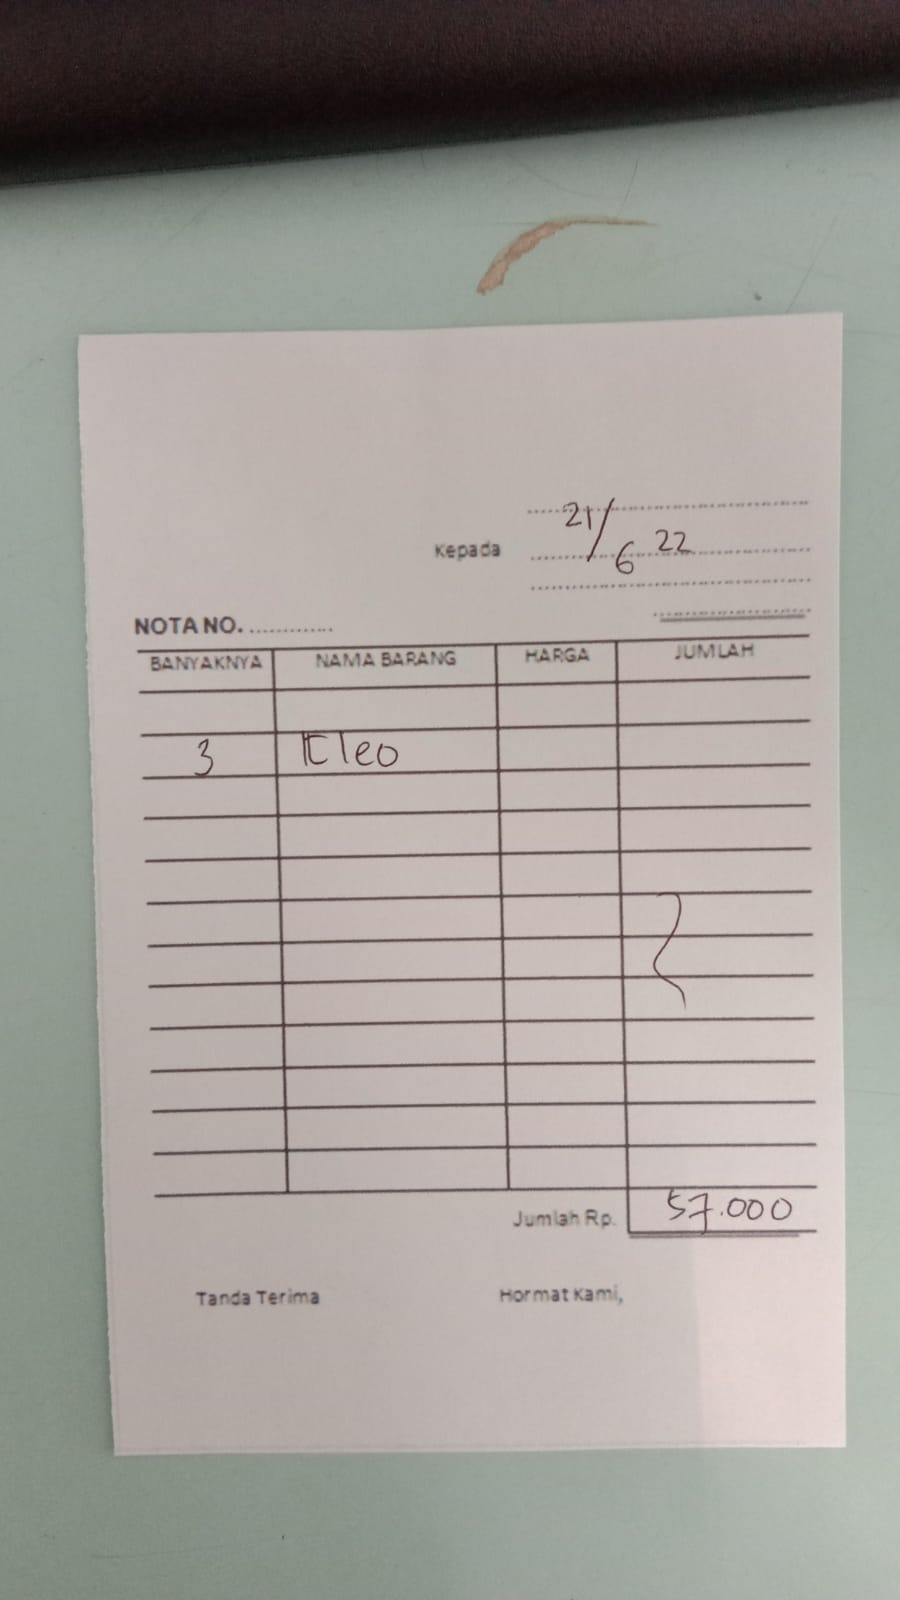 21/6 22
Kepada
NOTA NO. ............
BANYAKNYA NAMA BARANG HARGA JUMLAH
3 Kleo
Jumlah Rp. 57.000
Tanda Terima Hormat Kami,